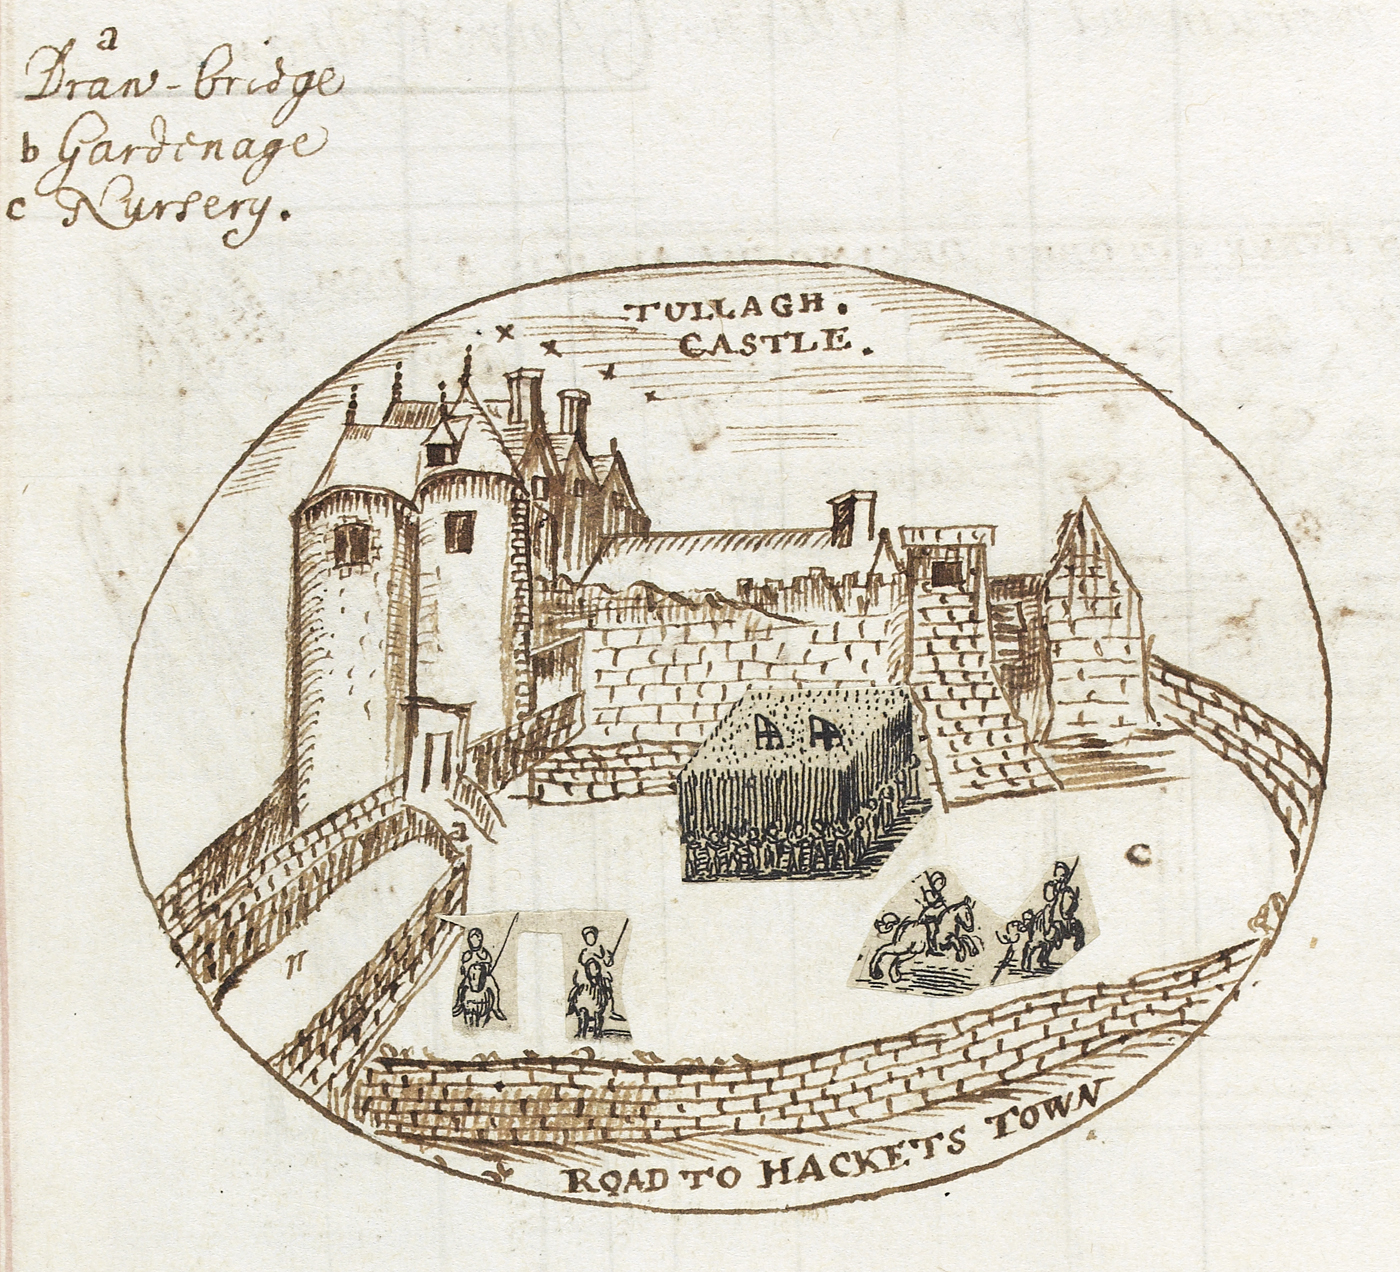 a
Draw-bridge
b Gardenage
c Nursery.
TULLAGH.
CASTLE.
a
c
n
ROAD TO HACKETS TOWN